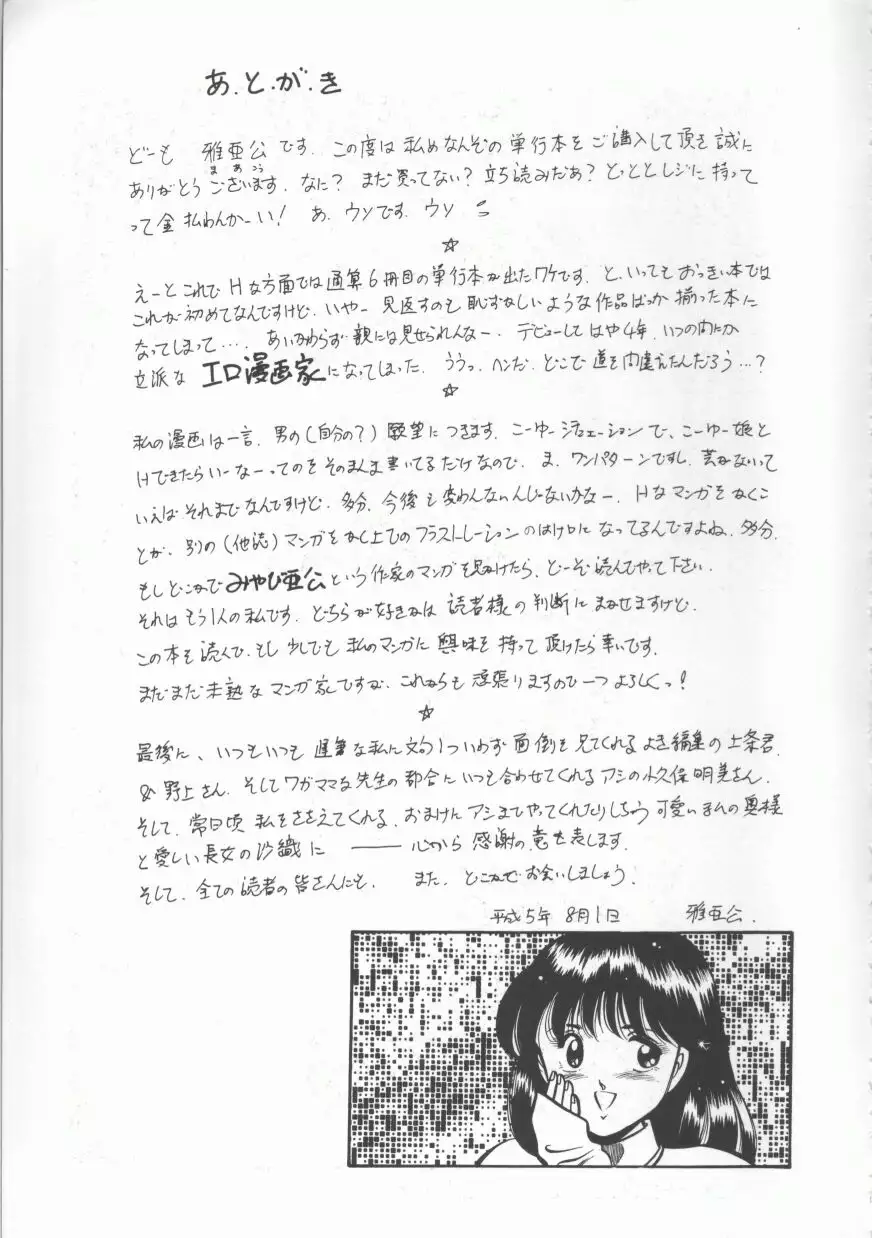 あ.と.が.き
どーも 雅亜公です. この度は私めなんぞの単行本をご購入して頂き誠に
まあこう
ありがとうございます. なに? まだ買ってない? 立ち読みだあ? とっととレジに持って
って金払わんかーい! あ. ウソです. ウソ
☆
えーとこれでHな方面では通算6冊目の単行本が出たワケです. と、いってもおっきい本では
これが初めてなんですけど. いやー 見返すのも恥ずかしいような作品ばっか揃った本に
なってしまって.... あいかわらず親には見せられんなー. デビューしてはや4年. いつの間にか
立派な エロ漫画家になってしまった. ううっ. ヘンだ. どこで道を間違えたんだろう...?
☆
私の漫画は一言. 男の(自分の?)願望につきます. こーゆーシチュエーションで、こーゆー娘と
Hできたらいーなーってのをそのまんま書いてるだけなので. ま、ワンパターンですし. 芸がないって
いえばそれまでなんですけど. 多分、今後も変わんないんじゃないかなー. Hなマンガをかくこ
とが、別の(他誌)マンガをかく上でのフラストレーションのはけ口になってるんですよね. 多分.
もしどこかでみやび亜公という作家のマンガを見かけたら、どーぞ読んでやって下さい.
それはもう1人の私です. どちらが好きかは 読者様の判断にまかせますけど.
この本を読んで、もし少しでも私のマンガに興味を持って頂けたら幸いです.
まだまだ未熟なマンガ家ですが、これからも頑張りますので一つよろしくっ!
☆
最後に、いつもいつも遅筆な私に文句1ついわず面倒を見てくれるよき編集の上条君.
& 野上さん. そしてワガママな先生の都合にいつも合わせてくれるアシの久保明美さん.
そして、常日頃私をささえてくれる、おまけにアシまでやってくれたりしちゃう可愛いまんの奥様
と愛しい長女の沙織に ―― 心から感謝の意を表します.
そして、全ての読者の皆さんにも. また、どこかでお会いしましょう.
平成5年 8月1日 雅亜公.